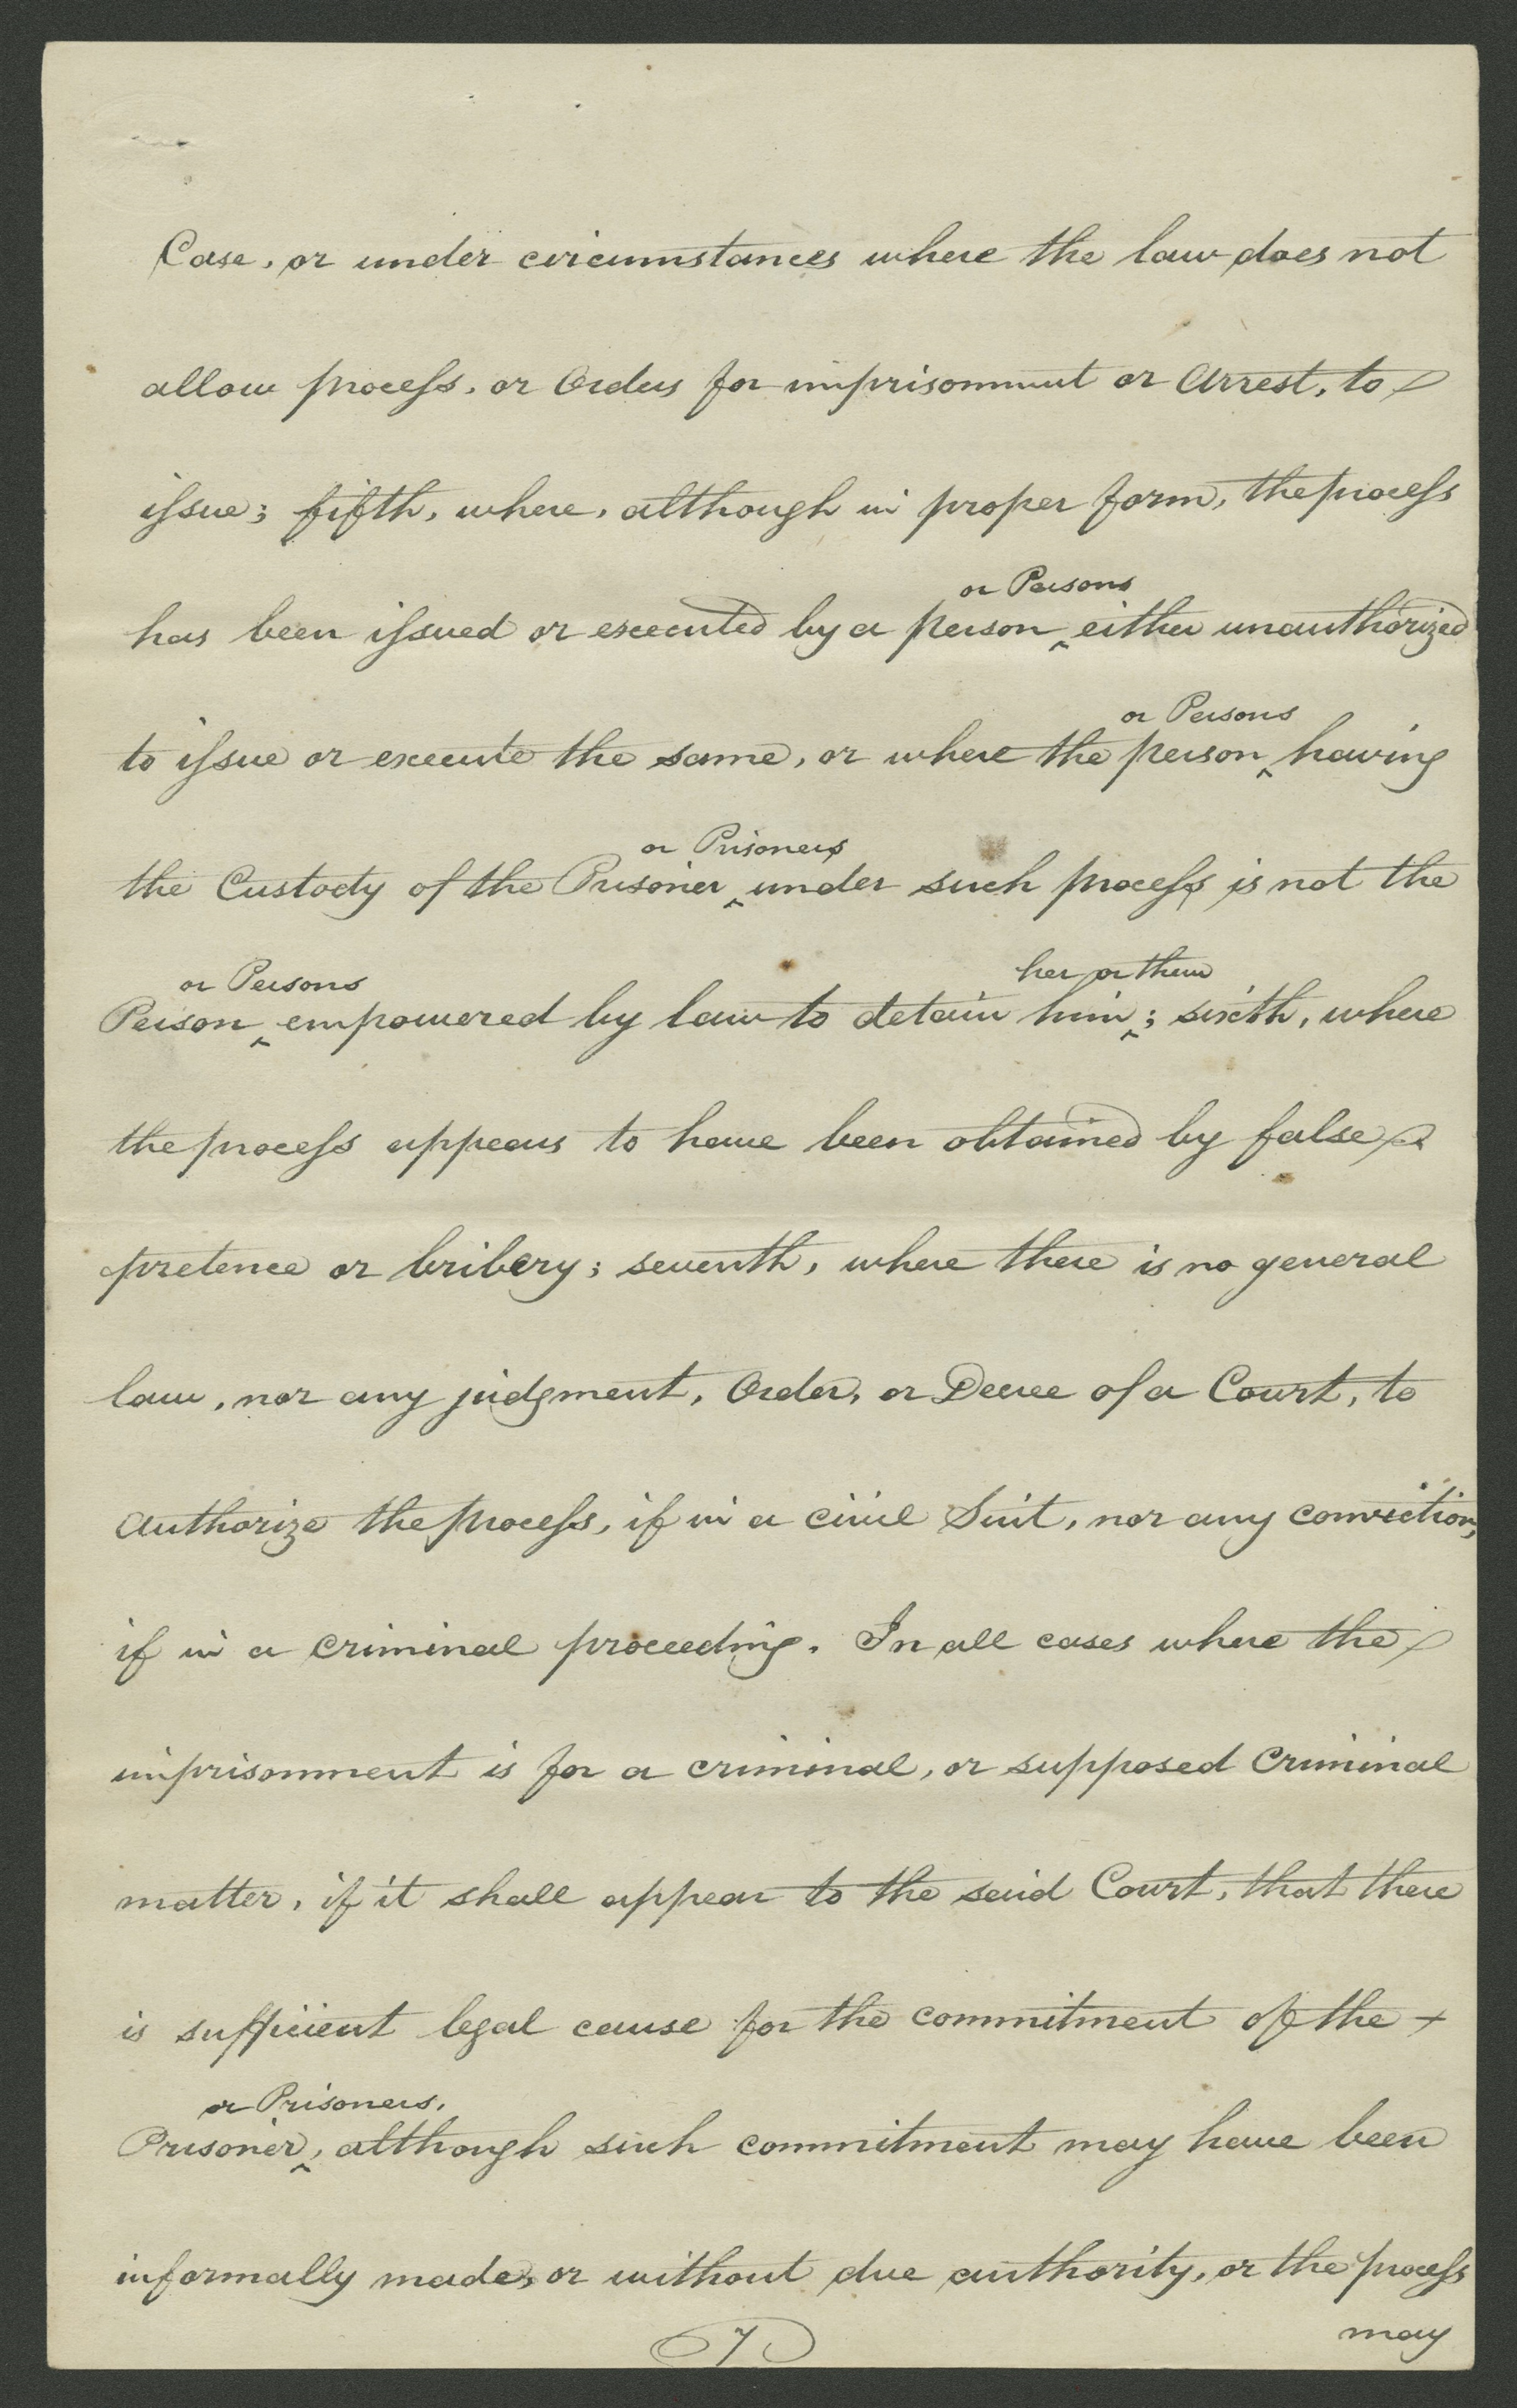 Case, or under circumstances where the law does not
allow process, or Orders for imprisonment or Arrest, to
issue; fifth, where, although in proper form, the process
or Persons
has been issued or executed by a person ‸ either unauthorized
or Persons
to issue or execute the same, or where the person ‸ having
or Prisoners
the Custody of the Prisoner ‸ under such process is not the
or Persons her or them
Person ‸ empowered by law to detain him ‸; sixth, where
the process appears to have been obtained by false
pretence or bribery; seventh, where there is no general
law, nor any judgment, Order, or Decree of a Court, to
Authorize the process, if in a civil Suit, nor any conviction,
if in a Criminal proceeding. In all cases where the
imprisonment is for a criminal, or supposed Criminal
matter, if it shall appear to the said Court, that there
is sufficient legal cause for the commitment of the
or Prisoners,
Prisoner, ‸ although such commitment may have been
informally made, or without due authority, or the process
may
7